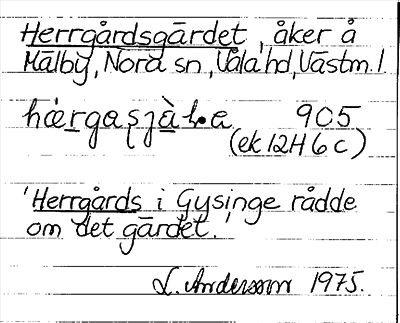 Herrgårdsgärdet, åker å
Mälby, Nora sn, Våla hd, Västm. l
905
(ek 12H 6c)
'Herrgårds i Gysinge rådde
om det gärdet.'
L. Andersson 1975.